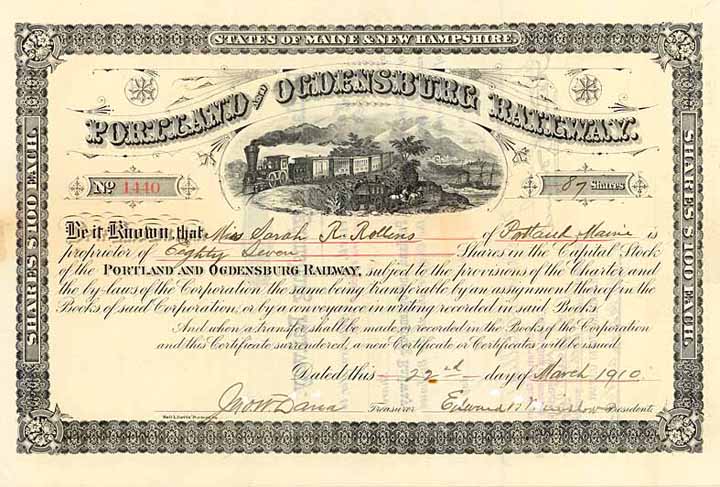 STATES OF MAINE & NEW HAMPSHIRE.
PORTLAND AND OGDENSBURG RAILWAY.
SHARES $100 EACH.
SHARES $100 EACH.
No 1440
87 Shares
Be it Known, that Miss Sarah R. Rollins of Portland Maine is
proprietor of Eighty Seven Shares in the Capital Stock
of the PORTLAND AND OGDENSBURG RAILWAY, subject to the provisions of the Charter and
the by-laws of the Corporation the same being transferable by an assignment thereof in the
Books of said Corporation, or by a conveyance in writing recorded in said Books.
And when a transfer shall be made or recorded in the Books of the Corporation
and this Certificate surrendered, a new Certificate or Certificates will be issued.
Dated this 22nd day of March 1910.
Jno. W. Dana Treasurer Edward Winslow President.